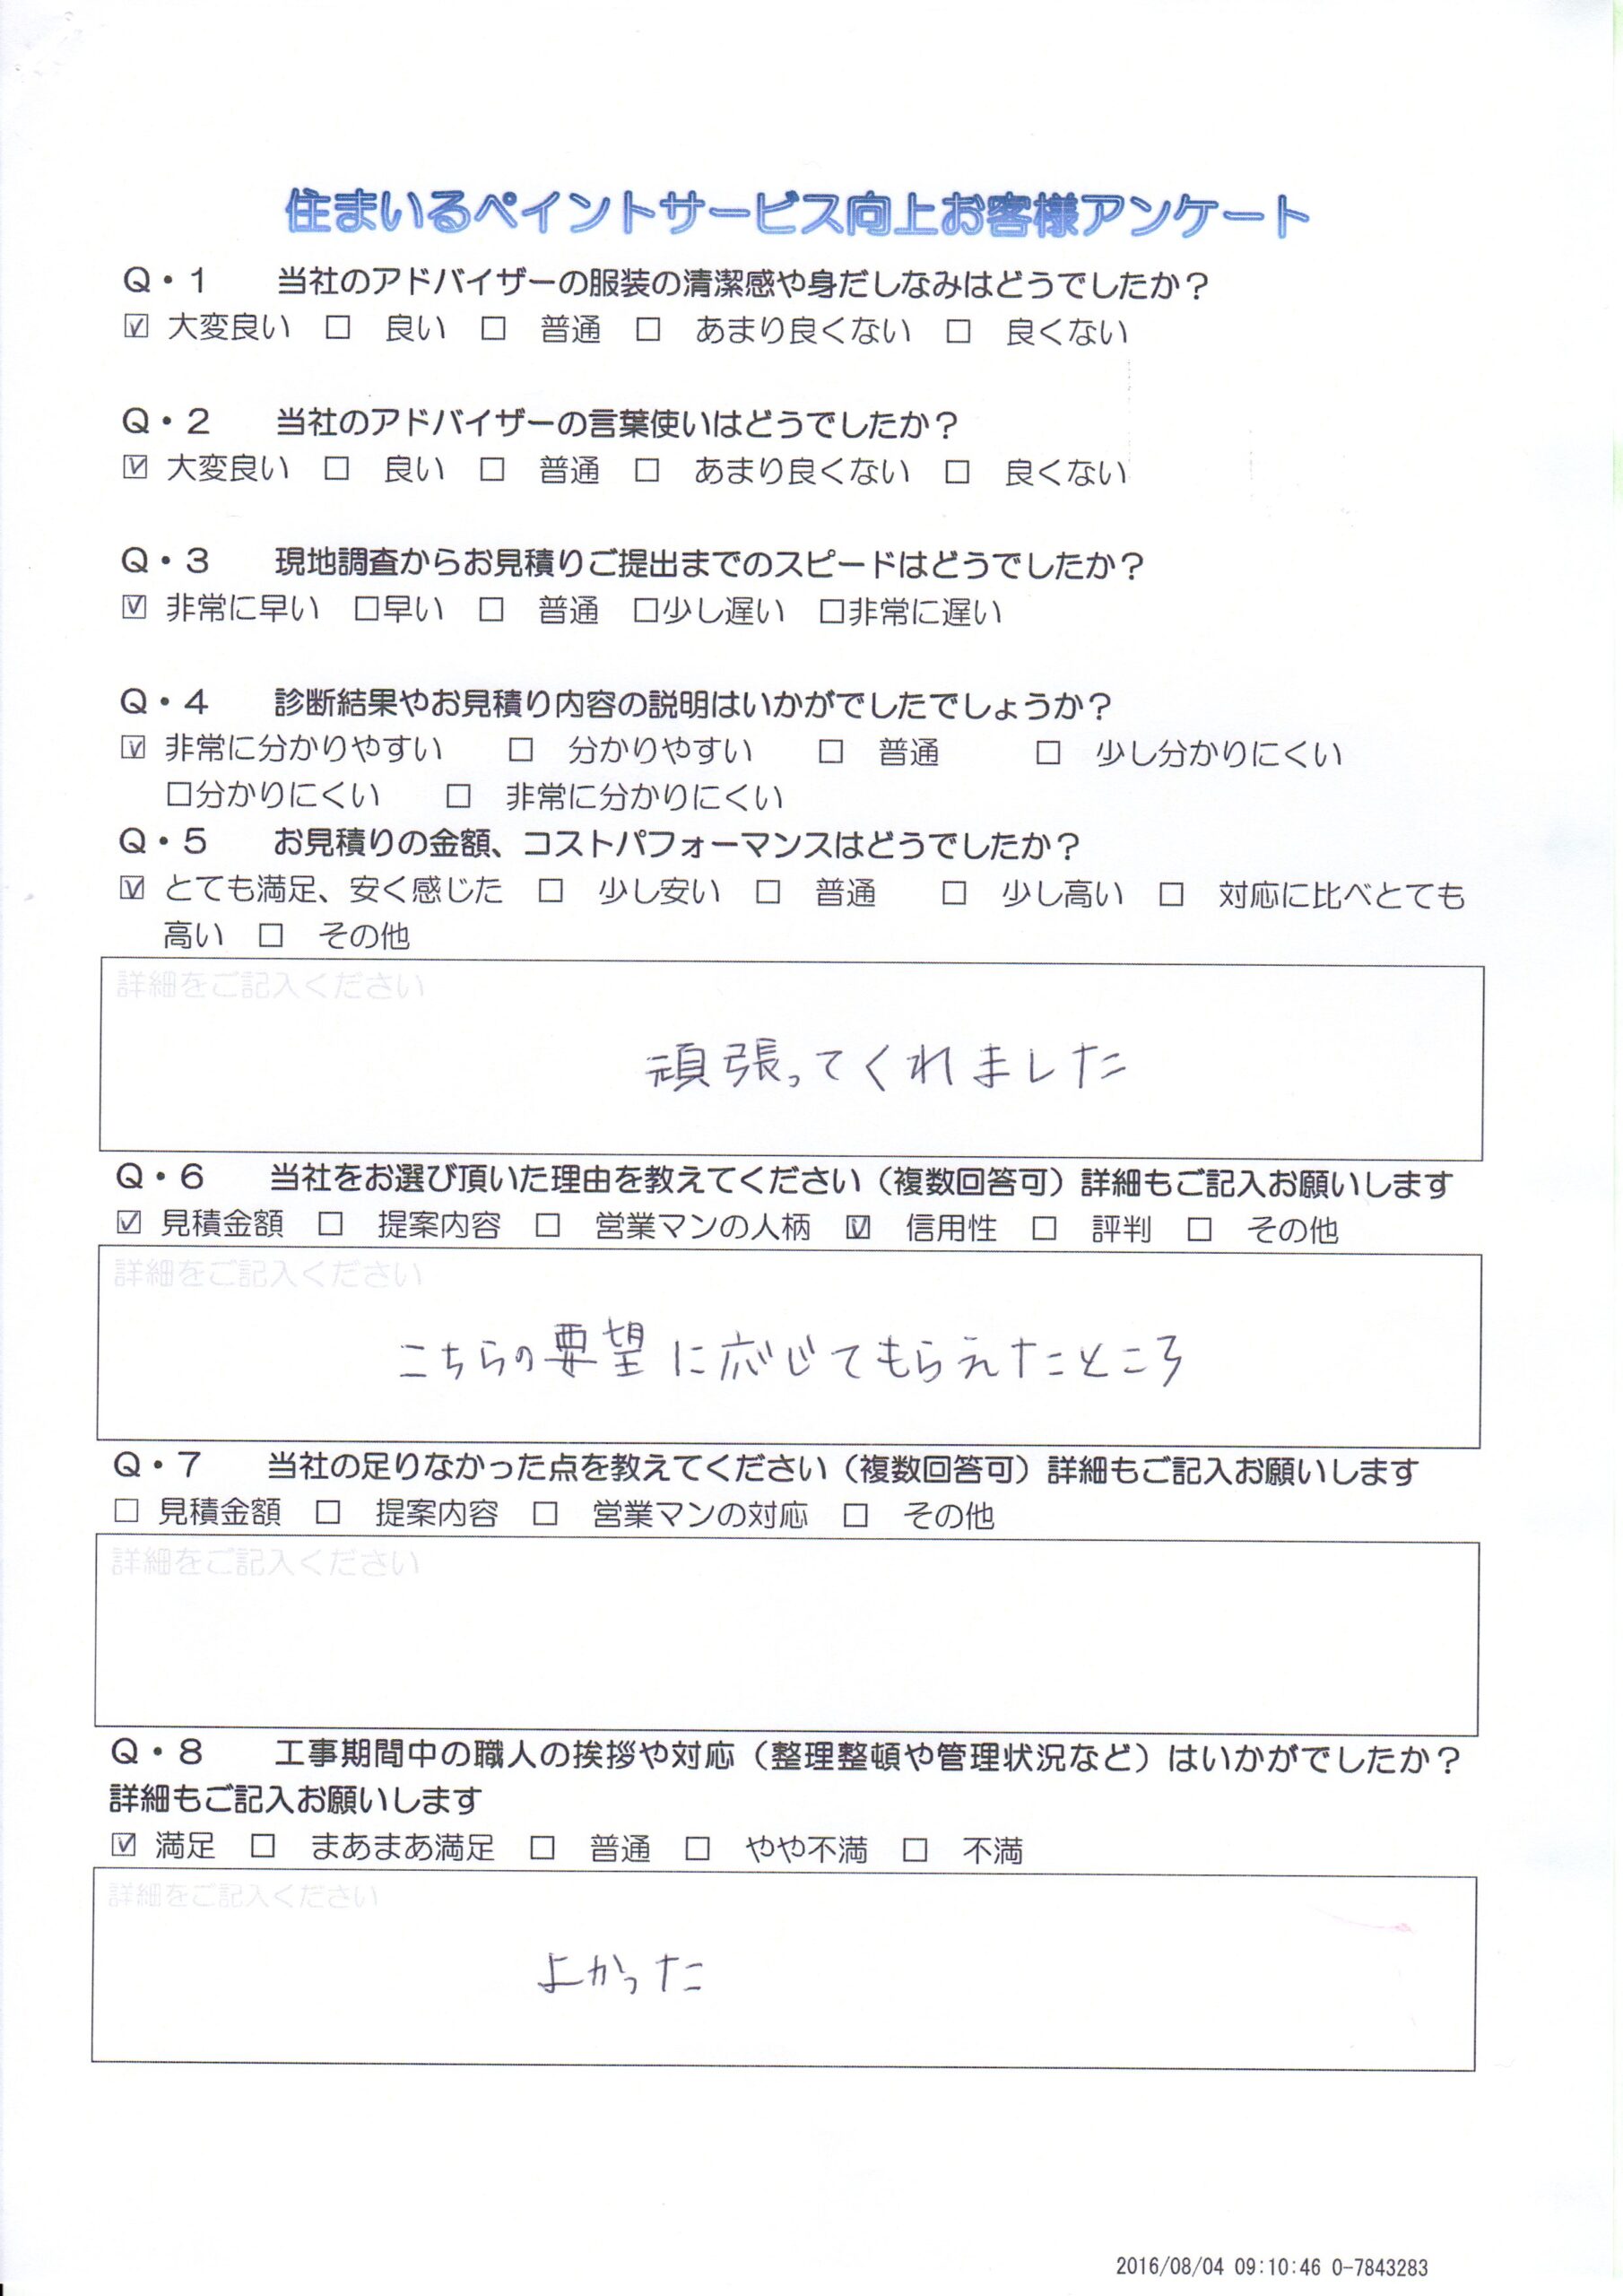 住まいるペイントサービス向上お客様アンケート
Q・1　当社のアドバイザーの服装の清潔感や身だしなみはどうでしたか？
☑ 大変良い □ 良い □ 普通 □ あまり良くない □ 良くない
Q・2　当社のアドバイザーの言葉使いはどうでしたか？
☑ 大変良い □ 良い □ 普通 □ あまり良くない □ 良くない
Q・3　現地調査からお見積りご提出までのスピードはどうでしたか？
☑ 非常に早い □早い □ 普通 □少し遅い □非常に遅い
Q・4　診断結果やお見積り内容の説明はいかがでしたでしょうか？
☑ 非常に分かりやすい □ 分かりやすい □ 普通 □ 少し分かりにくい
□分かりにくい □ 非常に分かりにくい
Q・5　お見積りの金額、コストパフォーマンスはどうでしたか？
☑ とても満足、安く感じた □ 少し安い □ 普通 □ 少し高い □ 対応に比べとても
高い □ その他
詳細をご記入ください
頑張ってくれました
Q・6　当社をお選び頂いた理由を教えてください（複数回答可）詳細もご記入お願いします
☑ 見積金額 □ 提案内容 □ 営業マンの人柄 ☑ 信用性 □ 評判 □ その他
詳細をご記入ください
こちらの要望に応じてもらえたところ
Q・7　当社の足りなかった点を教えてください（複数回答可）詳細もご記入お願いします
□ 見積金額 □ 提案内容 □ 営業マンの対応 □ その他
詳細をご記入ください
Q・8　工事期間中の職人の挨拶や対応（整理整頓や管理状況など）はいかがでしたか？
詳細もご記入お願いします
☑ 満足 □ まあまあ満足 □ 普通 □ やや不満 □ 不満
詳細をご記入ください
よかった
2016/08/04 09:10:46 0-7843283